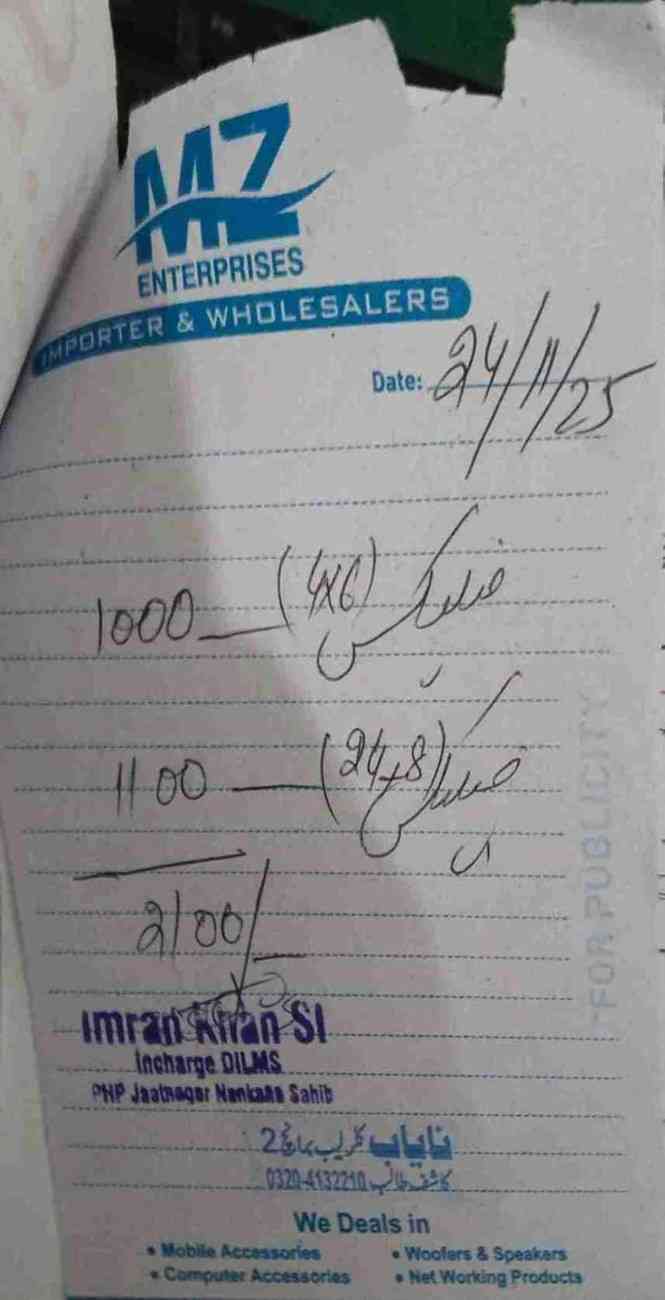 MZ
ENTERPRISES
IMPORTER & WHOLESALERS
Date: 24/11/25
1000 — (4x6) فلیکس
1100 — (24x8) فلیکس
2100/-
Imran Khan SI
Incharge DILMS
PHP Jaatnagar Nankana Sahib
نایاب 2
کاشف طالب 0320-4132210
We Deals in
• Mobile Accessories • Woofers & Speakers
• Computer Accessories • Net Working Products
FOR PUBLICITY